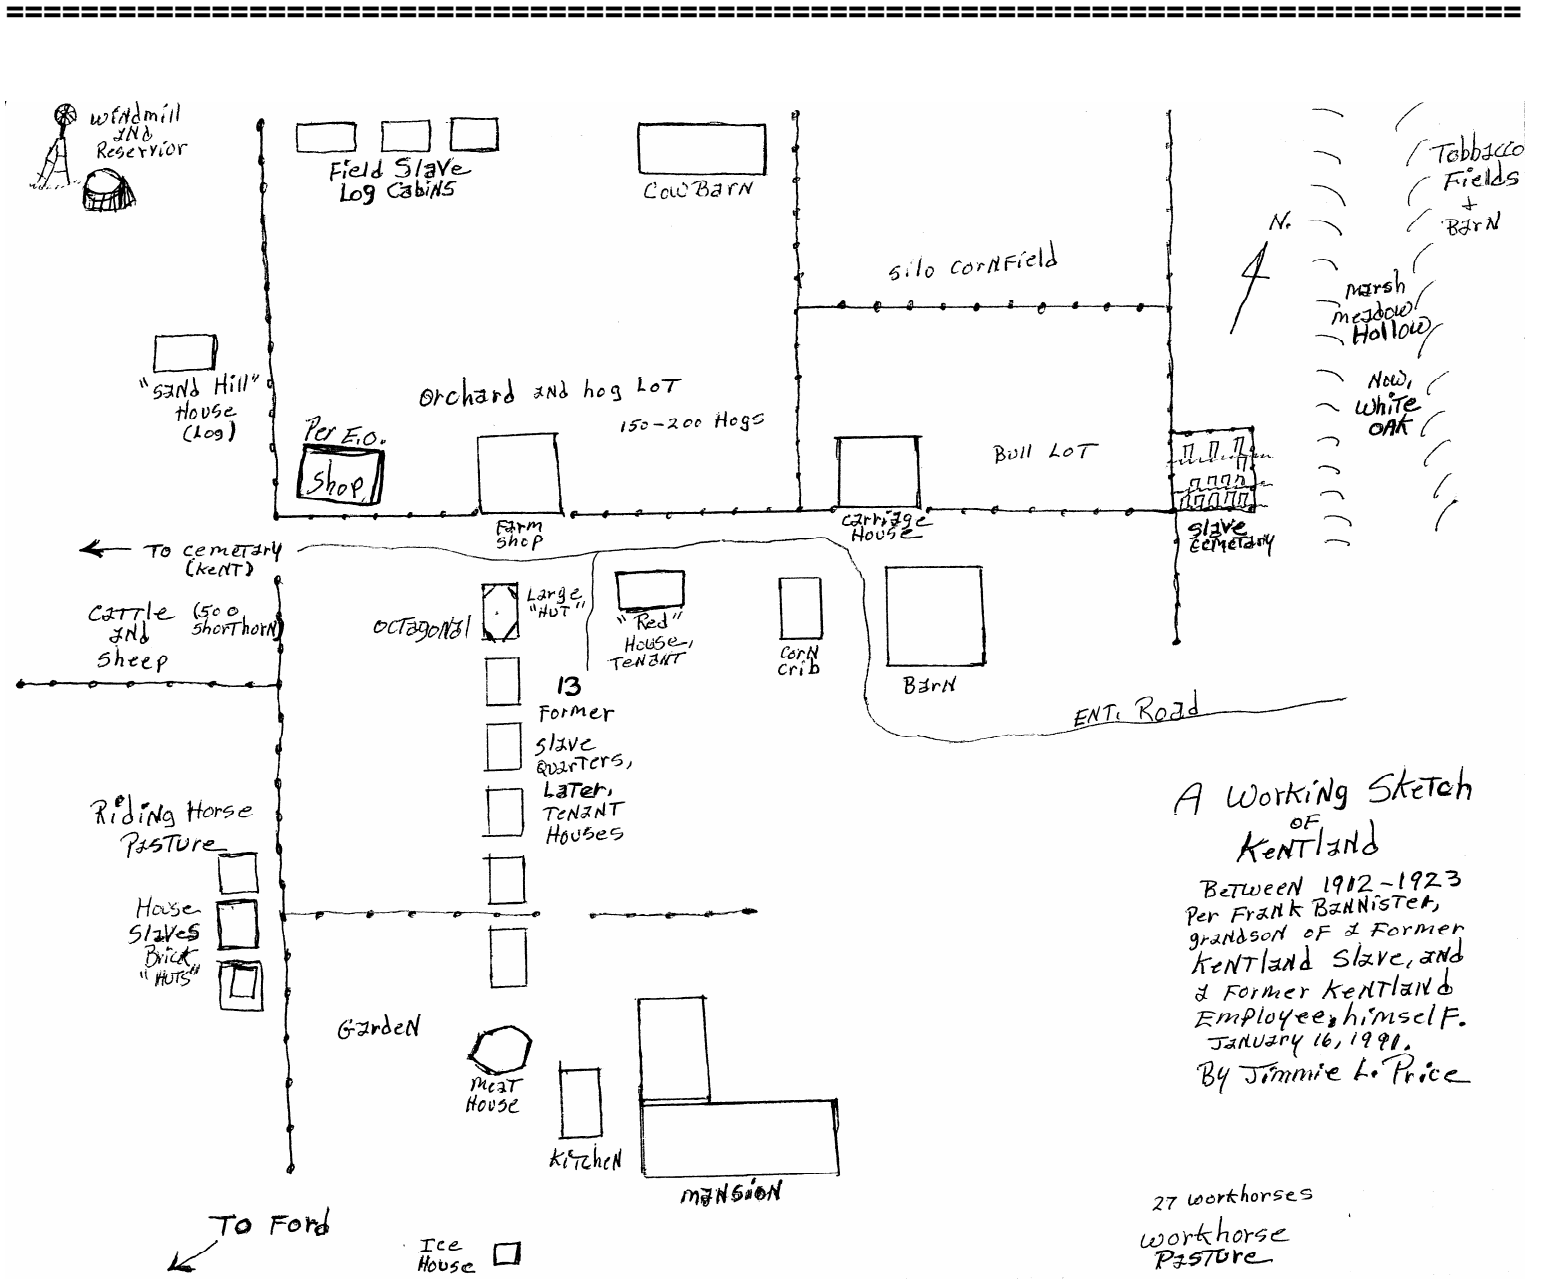 Windmill
and
Reservior
Field Slave
Log Cabins
Cow Barn
Tobbacco
Fields
+
Barn
N.
Silo Cornfield
Marsh
meadow
Hollow
Now,
White
Oak
"Sand Hill"
House
(Log)
Orchard and hog Lot
150-200 Hogs
Per E.O.
Shop
Farm
Shop
Carriage
House
Bull Lot
Slave
Cemetary
To Cemetary
(Kent)
Cattle (500
and Shorthorn)
Sheep
Octagonal
Large
"Hut"
"Red"
House,
Tenant
Corn
Crib
Barn
Ent. Road
13
Former
Slave
Quarters,
Later,
Tenant
Houses
Riding Horse
Pasture
House
Slaves
Brick
"Huts"
Garden
Meat
House
Kitchen
Mansion
To Ford
Ice
House
A Working Sketch
of
Kentland
Between 1912-1923
Per Frank Bannister,
grandson of a Former
Kentland Slave, and
a Former Kentland
Employee, himself.
January 16, 1991.
By Jimmie L. Price
27 workhorses
workhorse
Pasture